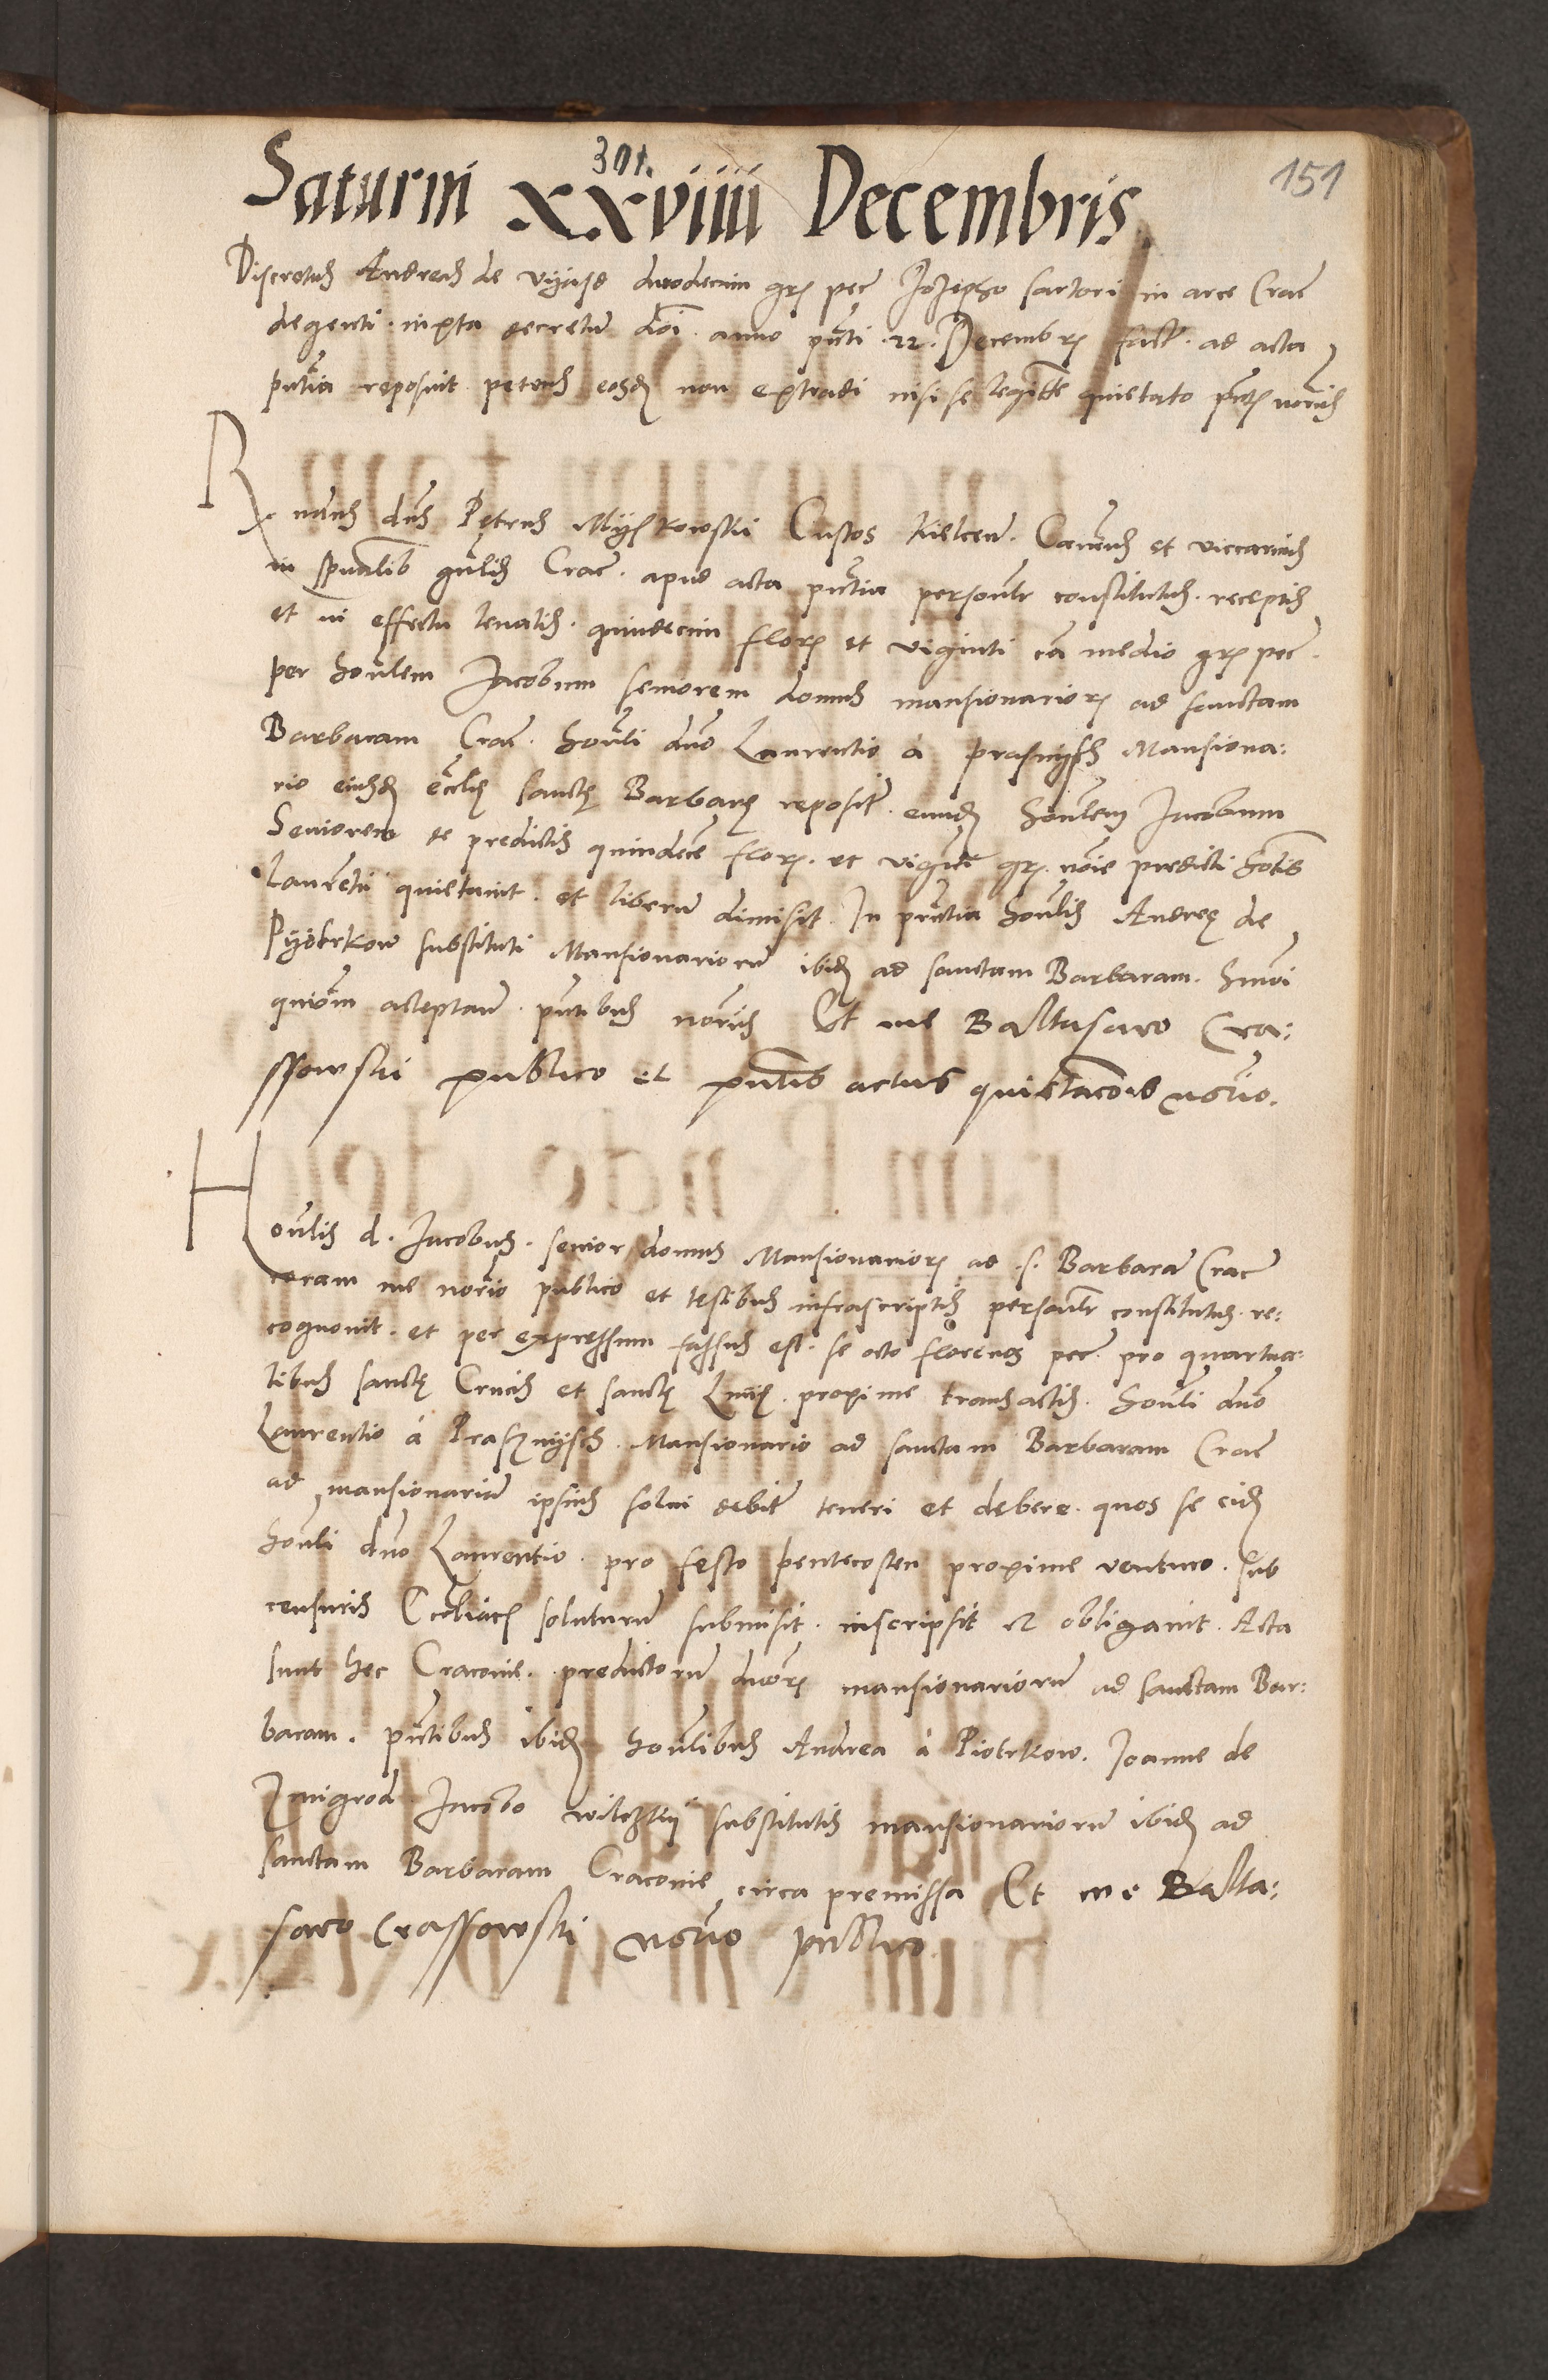 301.
151
Saturni xxviiii Decembris
Discretus Andreas de Uyasd duodecim grꝫ pec Jozepho sartori in arce Crac
degenti iuxta decretum dni anno pnti 22. Decembrꝫ fact. ad acta
pntia reposuit petens eosdꝫ non extradi nisi se legitte quietato pntꝫ noriis
R
ndus dns Petrus Myszkowski Custos Kielcen. Canonicus et viccarius
in spualib gnlis Crac. apud acta pntia personlr constitutus. receptis
et in effectu levatis. quindecim florꝫ et viginti cũ medio grꝫ pec.
per honlem Jacobum seniorem domus mansionariorꝫ ad sanctam
Barbaram Crac. honli dno Laurentio á prasnysh Mansiona:
rio eiusdꝫ ecclię sanctę Barbarę reposit. eundꝫ honlem Jacobum
Seniorem de predictis quindece florꝫ. et viginti grꝫ noie predicti honlis
Laurentii quietavit. et liberũ dimisit. In pntia honlis Andreę de
Pyotrkow substituti Mansionariorũ ibidꝫ ad sanctam Barbaram. hmoi
quiom acceptan. pntibus noriis Et me Baltasaro Cra:
ssowski publico et pntis actus quietacõis norio.
H
onlis d. Jacobus. senior domus Mansionariorꝫ ad .s. Barbarã Crac
coram me norio publico et testibus infrascriptis personlr constitutus. re:
cognovit. et per expressum fassus est. se octo florenos pec. pro quartua:
libus sanctę Crucis et sanctę Lucię. proxime transactis. honli dno
Laurentio á Prasznysch. Mansionario ad sanctam Barbaram Crac
ad mansionariũ ipsius solvi debit. teneri et debere. quos se eidꝫ
honli dno Laurentio. pro festo pentecosten proxime venturo. sub
censuris Eccliacis soluturũ submisit. inscripsit et obligavit. Acta
sunt hec Cracovie. predictorũ dnorꝫ mansionariorũ ad sanctam Bar:
baram. pntibus ibidꝫ honlibus Andrea á Piotrkow. Joanne de
Zmigrod Jacobo substitutis mansionariorũ ibidꝫ ad
sanctam Barbaram Cracovie circa premissa Et me Balta:
saro Crassowski norio publico.